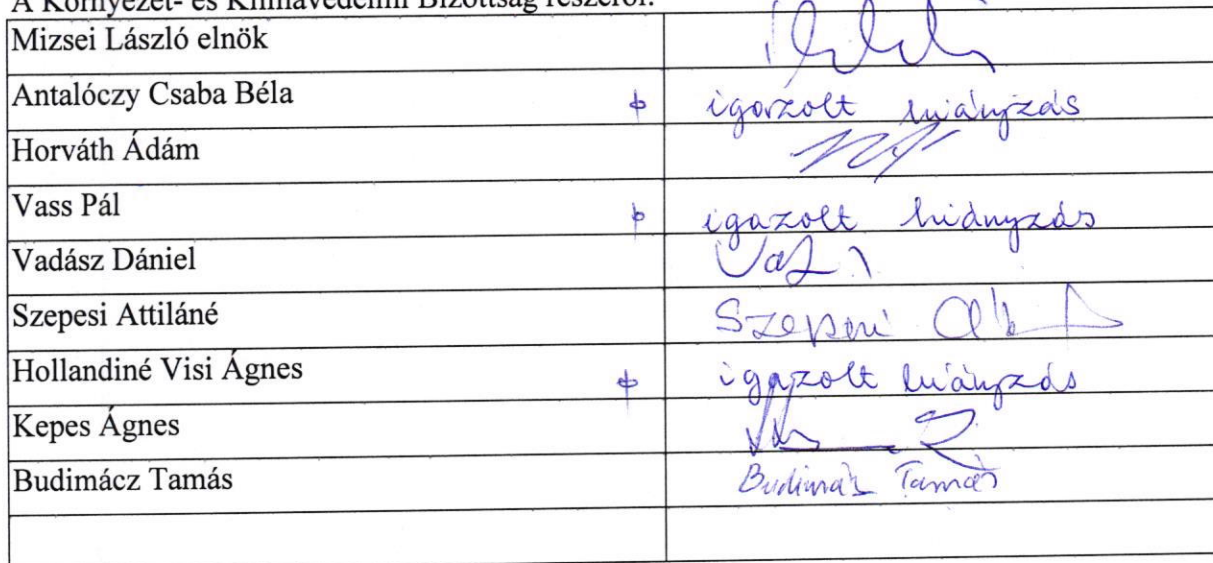 A Környezet- és Klímavédelmi Bizottság részéről:
Mizsei László elnök
Antalóczy Csaba Béla ϕ igazolt hiányzás
Horváth Ádám
Vass Pál ϕ igazolt hiányzás
Vadász Dániel
Szepesi Attiláné Szepesi
Hollandiné Visi Ágnes ϕ igazolt hiányzás
Kepes Ágnes
Budimácz Tamás Budimácz Tamás